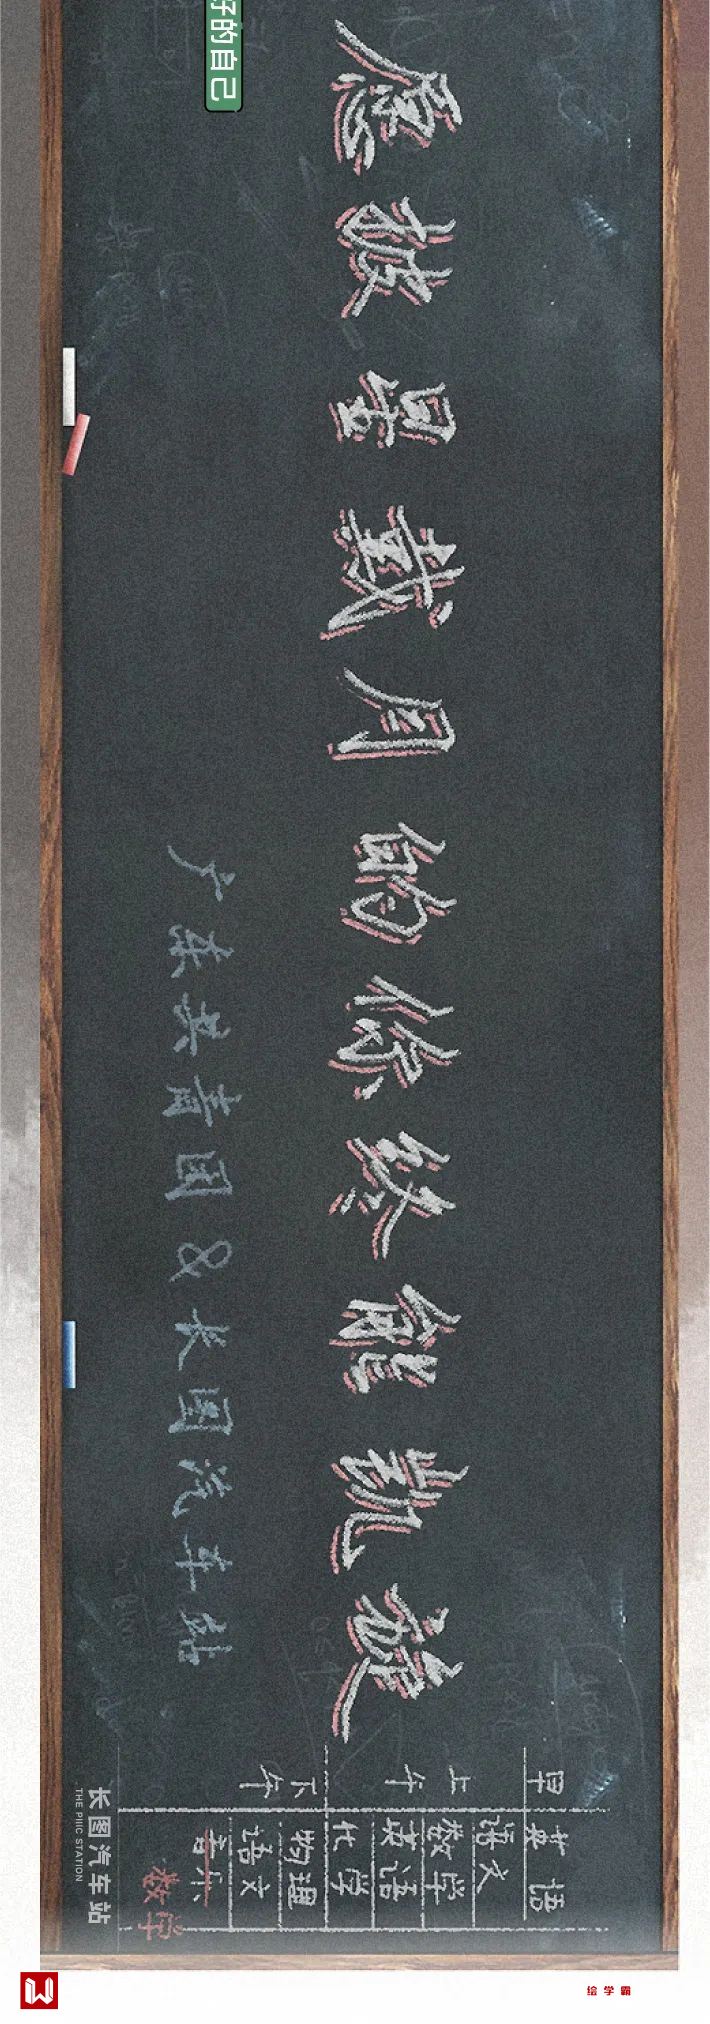 好的自己
愿披星戴月的你终能凯旋
广东共青团 & 长图汽车站
早 英语
上午 语文
数学
英语
化学
下午 物理
语文
音乐
数学
长图汽车站
THE PIIIC STATION
绘学霸